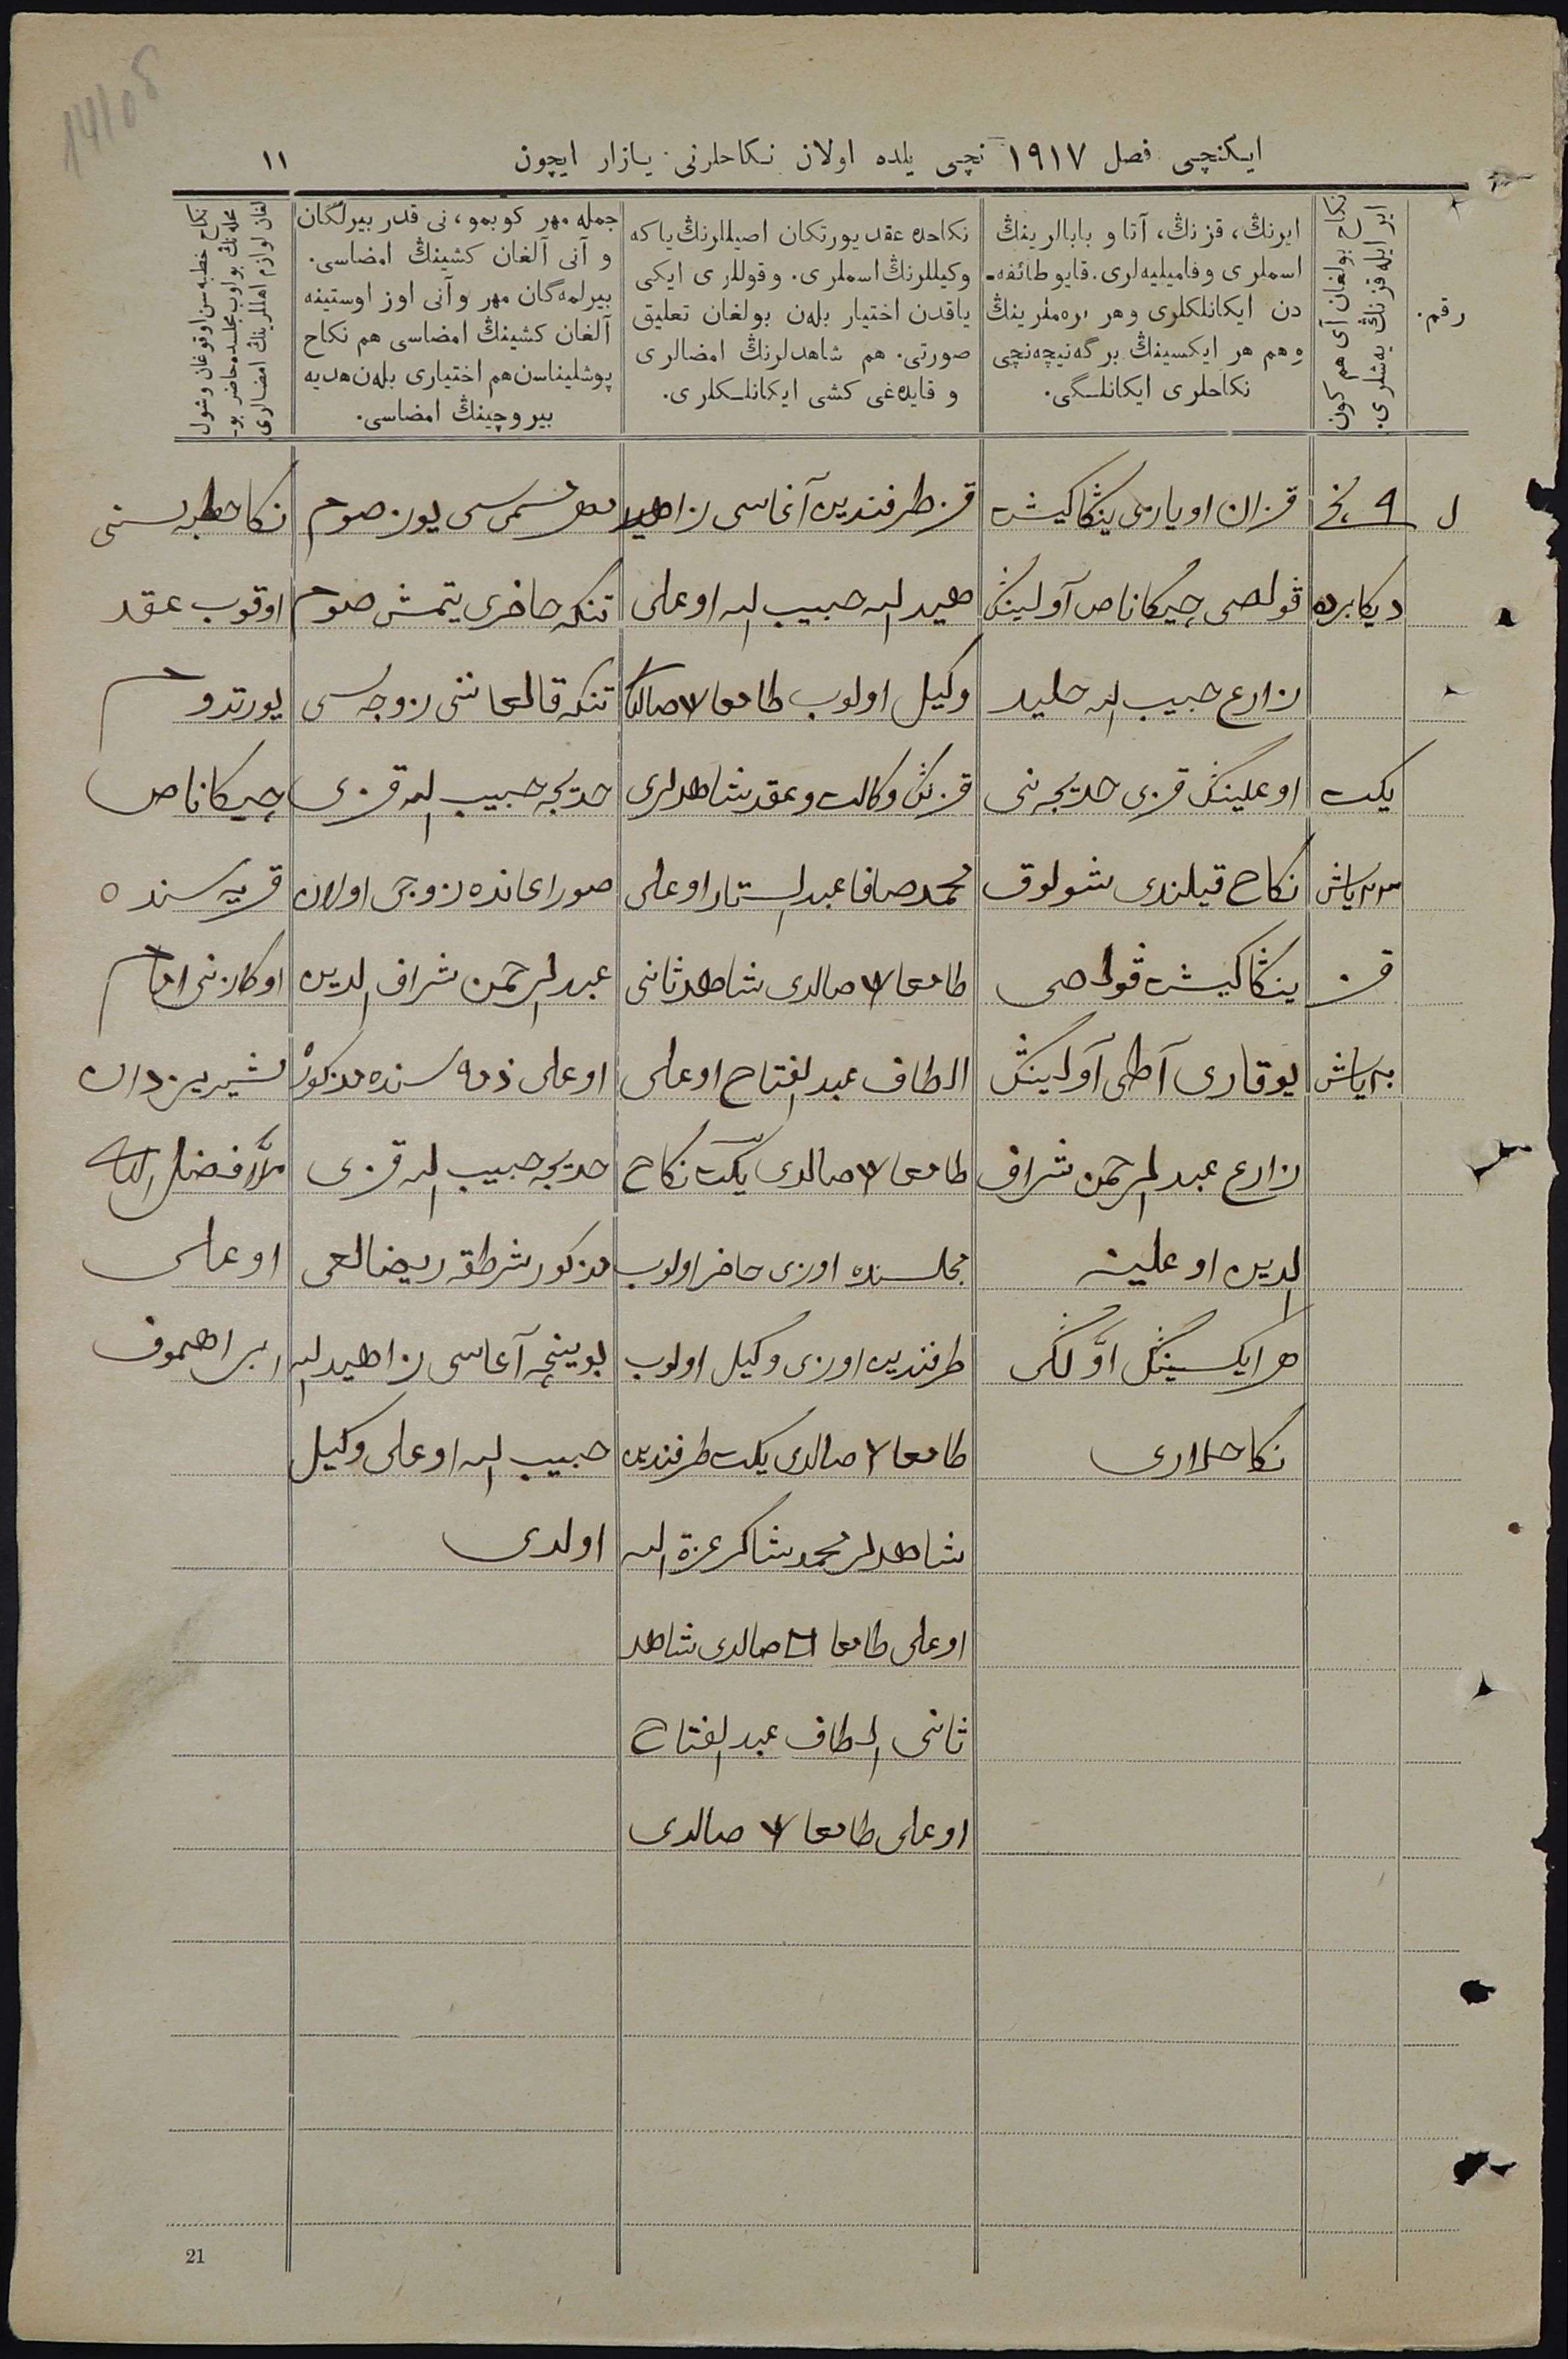 14108
ایکنچی فصل ۱۹۱۷ نچی یلده اولان نکاحلرنی یازار ایچون
۱۱
رقم.
نکاح بولغان آی هم کون
ایر ایله قزنڭ یه‌شلری.
ایرنڭ، قزنڭ، آتا و بابالرینڭ
اسملری و فامیلیه‌لری. قایو طائفه‌ـ
دن ایکانلکلری وهر
وهم هر ایکسینڭ برگه نیچه‌نچی
نکاحلری ایکانلـگی.
نکاحده عقد یورتکان اصیللرنڭ یا که
وکیللرنڭ اسملری. و قوللری ایکی
یاقدن اختیار بله‌ن بولغان تعلیق
صورتی. هم شاهدلرنڭ امضالری
و قایده‌غی کشی ایکانلـکلری.
جمله مهر کوبمو، نی قدر بیرلگان
و آنی آلغان کشینڭ امضاسی.
بیرلمه‌گان مهر وآنی اوز اوستینه
آلغان کشینڭ امضاسی هم نکاح
پوشلیناسن هم اختیاری بله‌ن هدیه
بیروچینڭ امضاسی.
نکاح خطبه‌سن اوقوغان وشول
محله‌نڭ بولوب مجلسده حاضر بو-
لغان لوازم اهللرینڭ امضالری
۹ نچی
دیکابرده
یکت
یاش
قز
یاش
قزان اویازی ینڭاکیش
ڤولصی چیکاناص آولینڭ
زارع حبیب الله حلید
اوغلینڭ قزی خدیجه‌نی
نکاح قیلندی شولوق
ینڭاکیش ڤولصی
یوقاری آطی آولینڭ
زارع عبد الرحمن شراف
الدین اوغلینه
هر ایکسینڭ اوّلگی
نکاحلاری
قز طرفندین آغاسی زاهید
هید الله حبیب الله اوغلی
وکیل اولوب طامغا صالدی
قزنڭ وکالت و عقد شاهدلری
محمد صافا عبد الستار اوغلی
طامغا صالدی شاهد ثانی
الطاف عبد الفتاح اوغلی
طامغا صالدی یکت نکاح
مجلسنده اوزی حاضر اولوب
طرفندین اوزی وکیل اولوب
طامغا صالدی یکت طرفندین
شاهدلر محمد شاکر عزة الله
اوغلی طامغا صالدی شاهد
ثانی الطاف عبد الفتاح
اوغلی طامغا صالدی
مهر مسمی سی یوز صوم
تنکه حاضری یتمش صوم
تنکه قالغاننی زوجه سی
خدیجه حبیب الله قزی
صوراغانده زوجی اولان
عبد الرحمن شراف الدین
اوغلی ذمه سنده مذکور
خدیجه حبیب الله قزی
مذکور شرطقه ریضالغی
بوینچه آغاسی زاهید الله
حبیب الله اوغلی وکیل
اولدی
نکاح خطبه سنی
اوقوب عقد
یورتدوم
چیکاناص
قریه سنده
اوکازنی امام
شیریزدان
ملا فضل الله
اوغلی
ابراهیموف
21